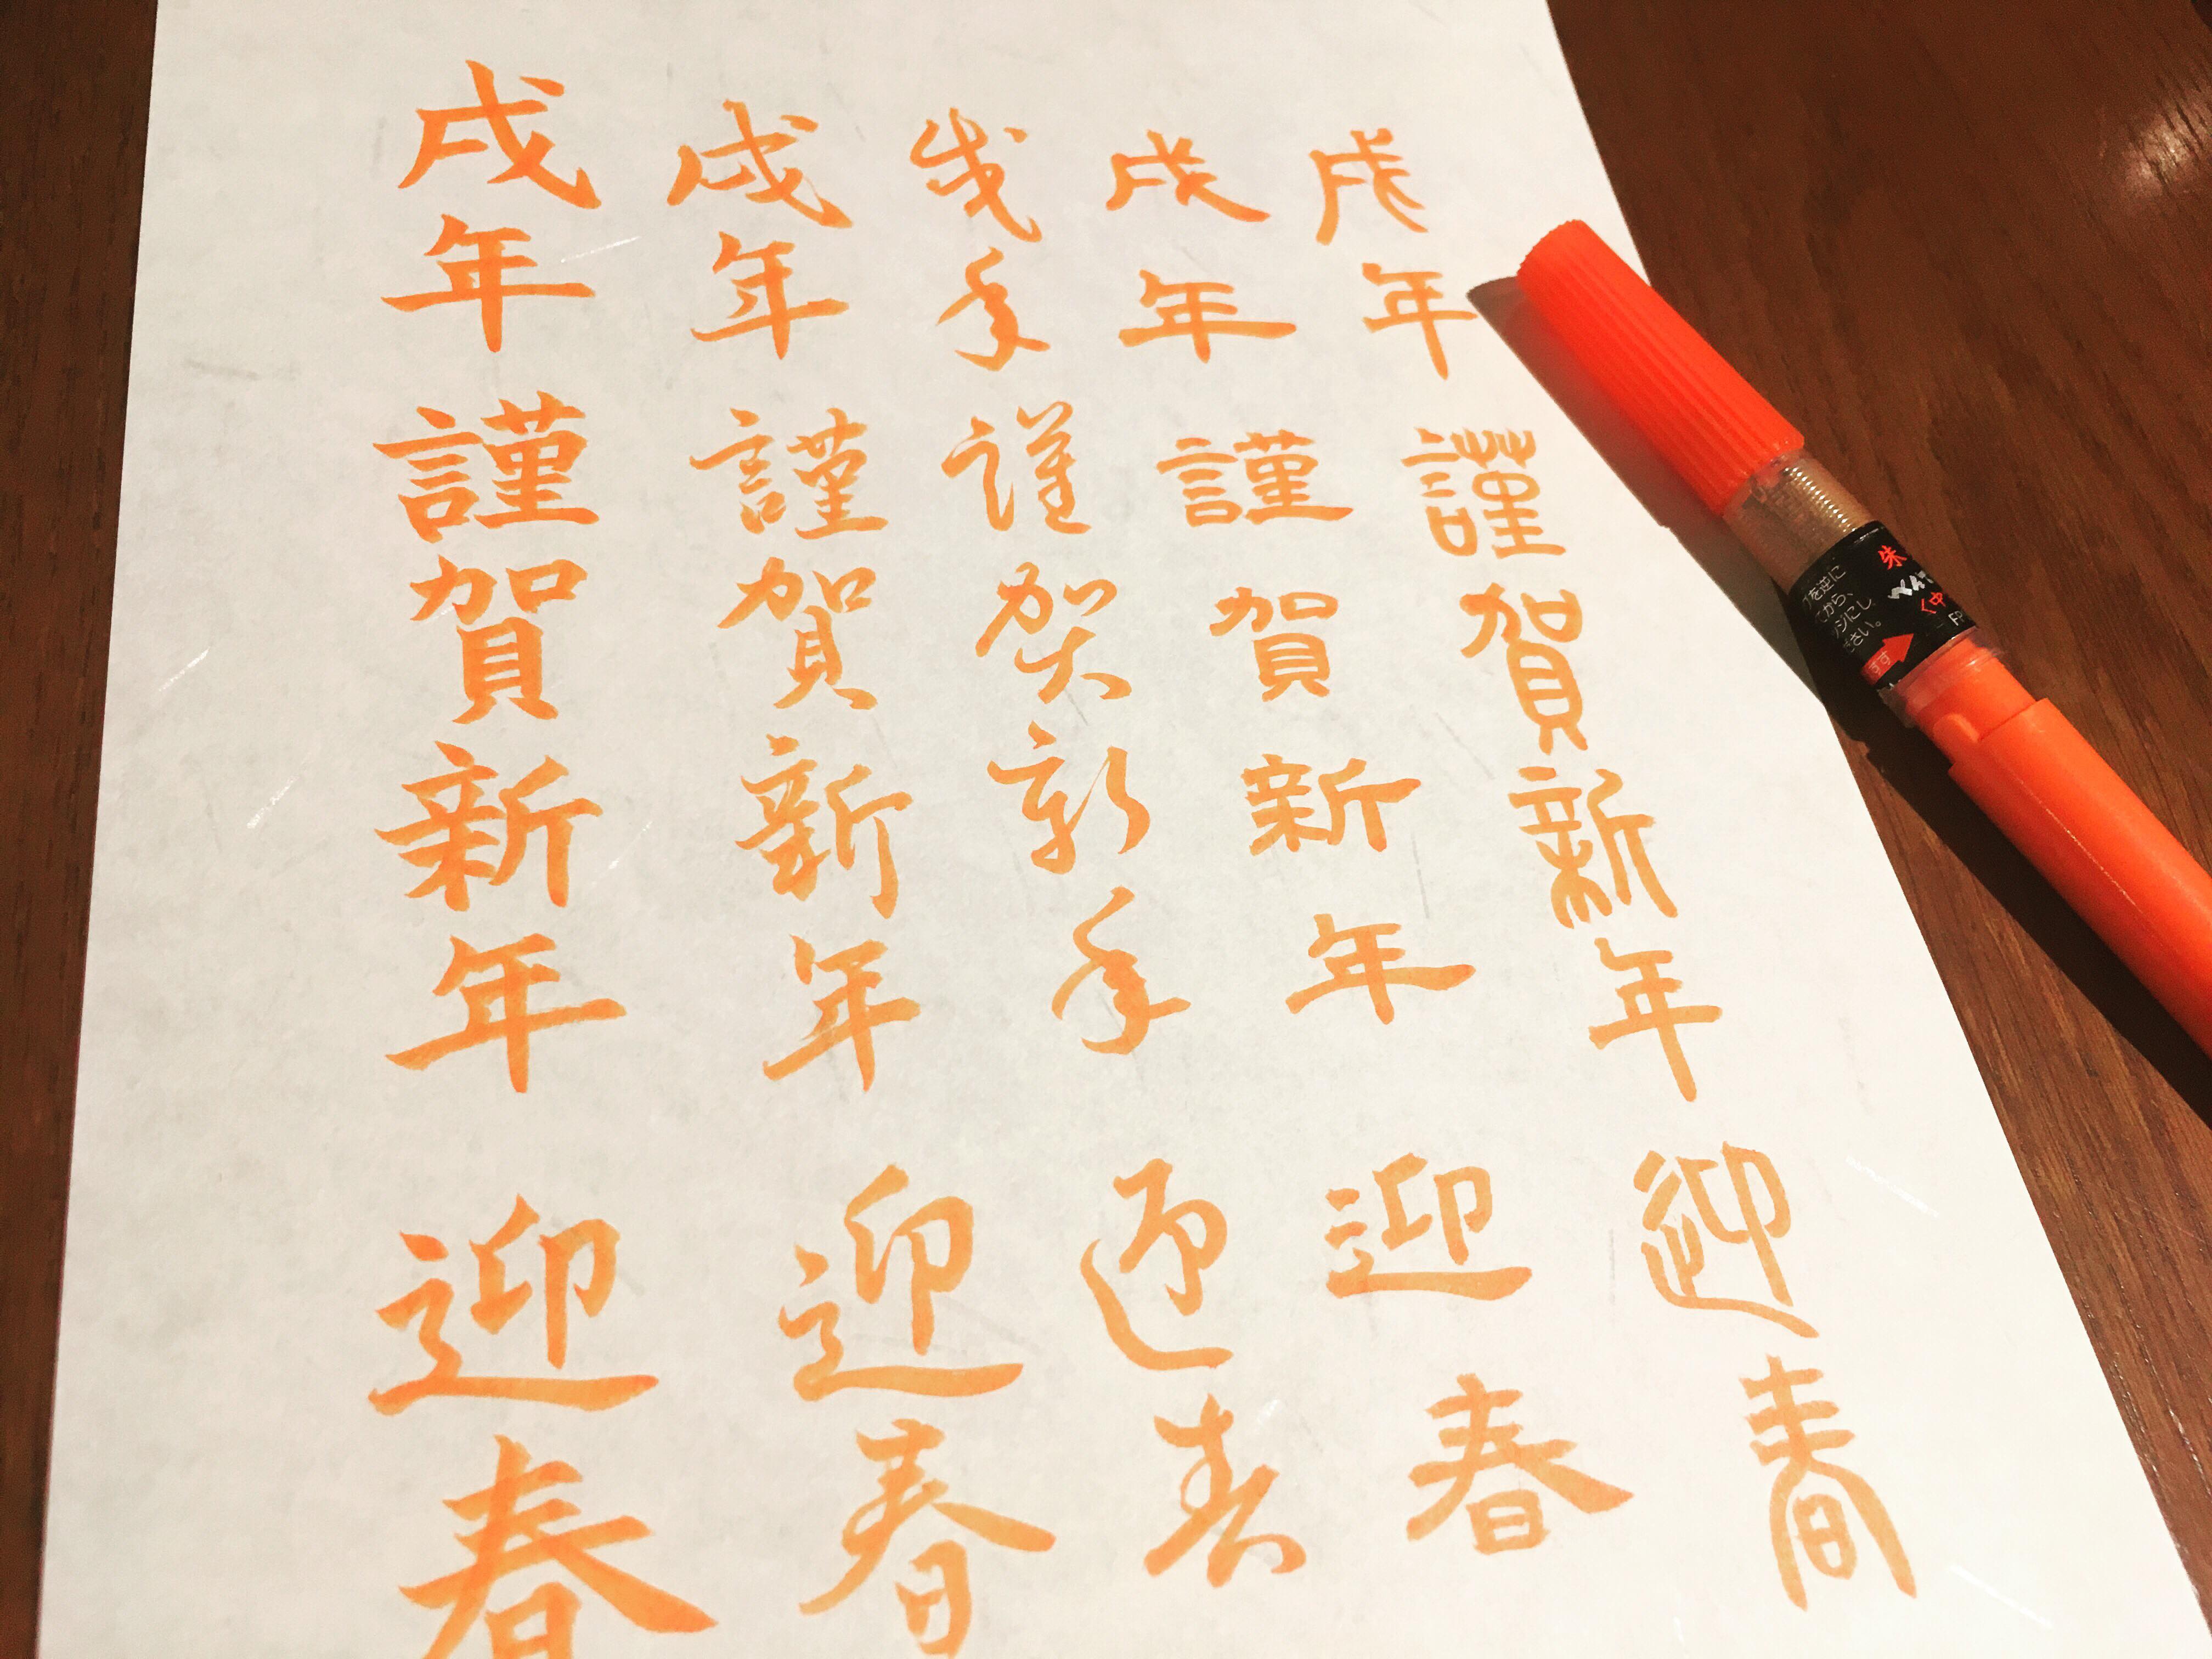 戌年 謹賀新年 迎春
戌年 謹賀新年 迎春
戌年 謹賀新年 迎春
戌年 謹賀新年 迎春
戌年 謹賀新年 迎春
朱
<中
を逆に
から、
にし
ださい。